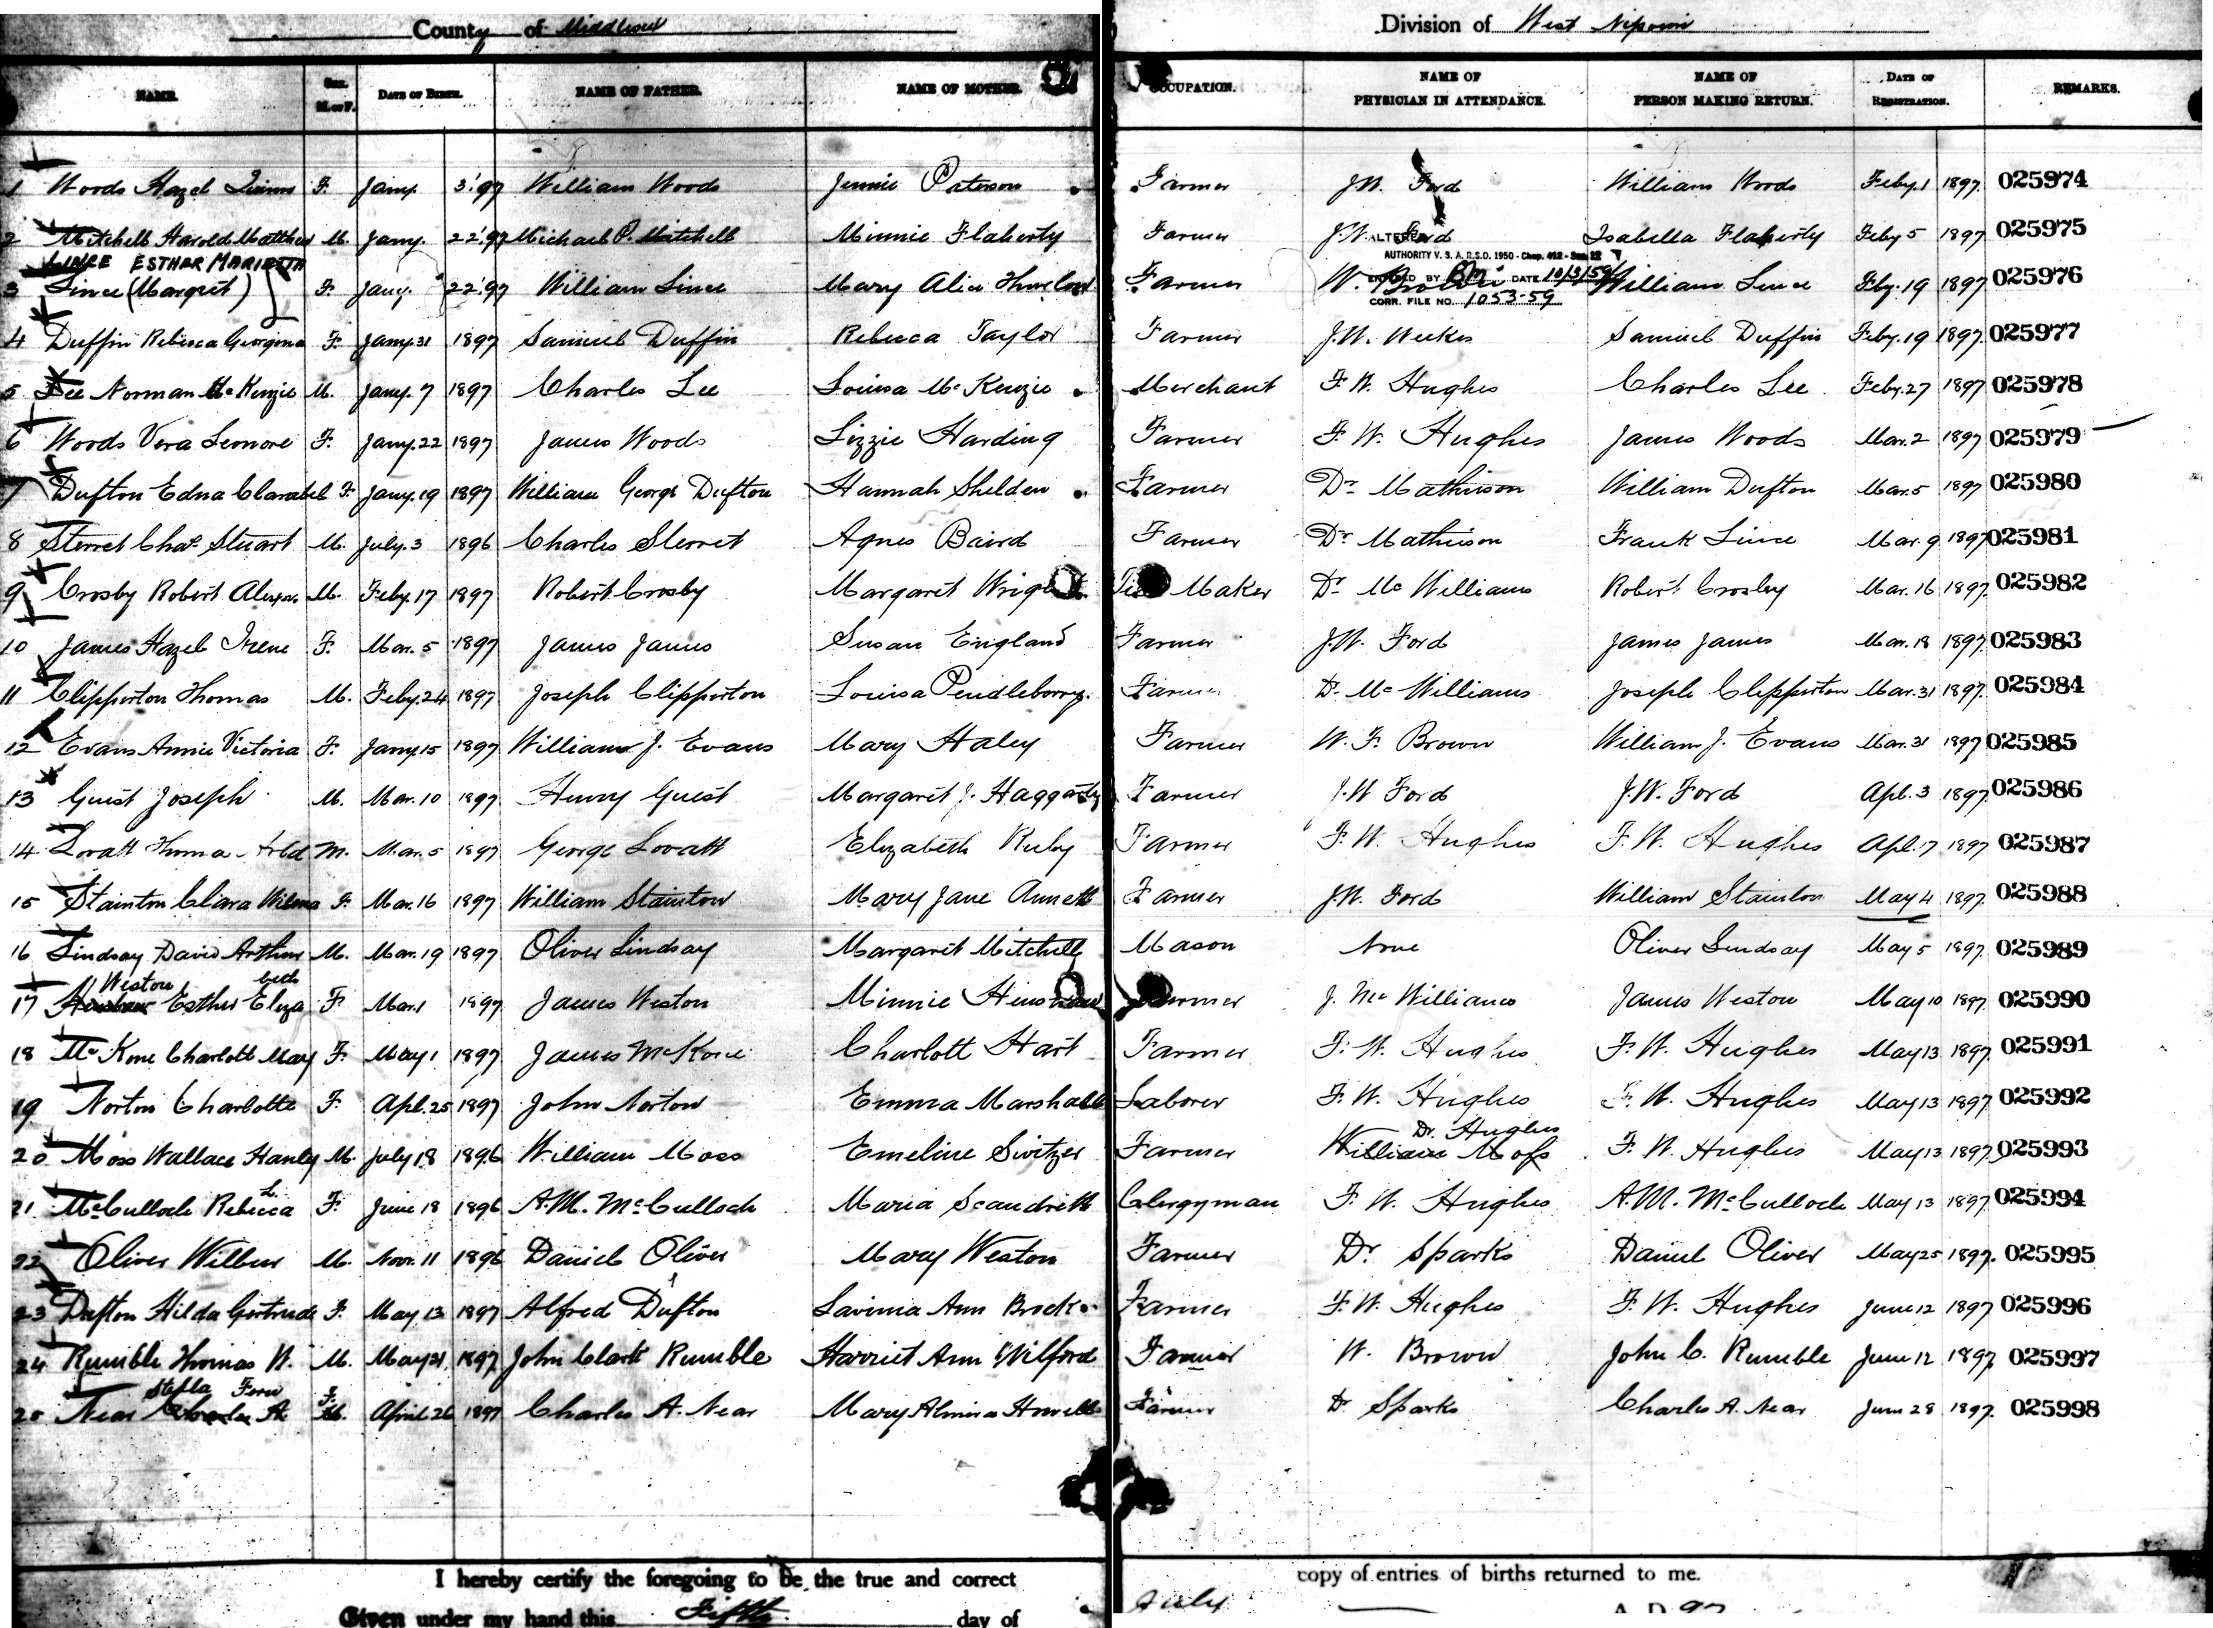 County of Middlesex Division of West Nissouri
NAME. Sex. M. or F. DATE OF BIRTH. NAME OF FATHER. NAME OF MOTHER. OCCUPATION. NAME OF PHYSICIAN IN ATTENDANCE. NAME OF PERSON MAKING RETURN. DATE OF REGISTRATION. REMARKS.
1 Woods Hazel F. Jany 3 '97 William Woods Jennie Paterson Farmer J.W. Ford William Woods Feby. 1 1897. 025974
2 Mitchell Harold Matthew M. Jany. 22 '97 Michael P. Mitchell Minnie Flaherty Farmer J.W. Ford Isabella Flaherty Feby 5 1897 025975
LINCE ESTHER MARIETTA
ALTERED
AUTHORITY V. S. A. R.S.O. 1950 - Chap. 412 - Sec. 22
3 Lince (Margret) F. Jany. 22 '97 William Lince Mary Alice Thurlow Farmer W. Brown BY DATE 10/3/59 William Lince Feby. 19 1897 025976
CORR. FILE NO. 1053-59
4 Duffin Rebecca Georgina F. Jany. 31 1897 Samuel Duffin Rebecca Taylor Farmer J.W. Weekes Samuel Duffin Feby. 19 1897. 025977
5 Lee Norman McKenzie M. Jany. 7 1897 Charles Lee Louisa McKenzie Merchant F. W. Hughes Charles Lee Feby. 27 1897 025978
6 Woods Vera Lenore F. Jany. 22 1897 James Woods Lizzie Harding Farmer F. W. Hughes James Woods Mar. 2 1897 025979
7 Dufton Edna Clarabel F. Jany. 19 1897 William George Dufton Hannah Shelden Farmer Dr Mathieson William Dufton Mar. 5 1897 025980
8 Sterret Chas Stuart M. July. 3 1896 Charles Sterret Agnes Baird Farmer Dr Mathieson Frank Lince Mar. 9 1897 025981
9 Crosby Robert Alexr. M. Feby. 17 1897 Robert Crosby Margaret Wright Maker Dr McWilliams Robert Crosby Mar. 16 1897. 025982
10 James Hazel Irene F. Mar. 5 1897 James James Susan England Farmer J.W. Ford James James Mar. 18 1897. 025983
11 Clipperton Thomas M. Feby. 24 1897 Joseph Clipperton Louisa Pendleborry. Farmer Dr. McWilliams Joseph Clipperton Mar. 31 1897. 025984
12 Evans Annie Victoria F. Jany. 15 1897 William J. Evans Mary Haley Farmer W. F. Brown William J. Evans Mar. 31 1897 025985
13 Guest Joseph M. Mar. 10 1897 Henry Guest Margaret J. Haggarty Farmer J.W Ford J.W. Ford Apl. 3 1897. 025986
14 Lovatt M. Mar. 5 1897 George Lovatt Elizabeth Ruby Farmer F. W. Hughes F. W. Hughes Apl. 17 1897 025987
15 Stainton Clara Wilma F. Mar. 16 1897 William Stainton Mary Jane Annett Farmer J.W. Ford William Stainton May 4 1897. 025988
16 Lindsay David Arthur M. Mar. 19 1897 Oliver Lindsay Margaret Mitchell Mason None Oliver Lindsay May 5 1897. 025989
Weston beth
17 Henshaw Esther Eliza F. Mar. 1 1897 James Weston Minnie Henshaw Farmer J. McWilliams James Weston May 10 1897. 025990
18 McKone Charlott May F. May 1 1897 James McKone Charlott Hart Farmer F. W. Hughes F. W. Hughes May 13 1897. 025991
19 Norton Charlotte F. Apl. 25 1897 John Norton Emma Marshall Laborer F. W. Hughes F. W. Hughes May 13 1897. 025992
Dr. Hughes
20 Moss Wallace Hanley M. July 18 1896 William Moss Emeline Switzer Farmer William Moss F. W. Hughes May 13 1897. 025993
L.
21 McCulloch Rebecca F. June 18 1896 A.M. McCulloch Maria Scandrett Clergyman F. W. Hughes A.M. McCulloch May 13 1897 025994
22 Oliver Wilbur M. Nov. 11 1896 Daniel Oliver Mary Weston Farmer Dr Sparks Daniel Oliver May 25 1897. 025995
23 Dufton Hilda Gertrude F. May 13 1897 Alfred Dufton Lavinia Ann Brock Farmer F. W. Hughes F. W. Hughes June 12 1897 025996
24 Rumble Thomas W. M. May 21 1897 John Clark Rumble Harriet Ann Wilford Farmer W. Brown John C. Rumble June 12 1897 025997
Stella Fern F
25 Near Charles A. M. April 26 1897 Charles A. Near Mary Almira Howell Farmer Dr Sparks Charles A. Near June 28 1897. 025998
I hereby certify the foregoing to be the true and correct copy of entries of births returned to me.
Given under my hand this Fifth day of July A. D 97